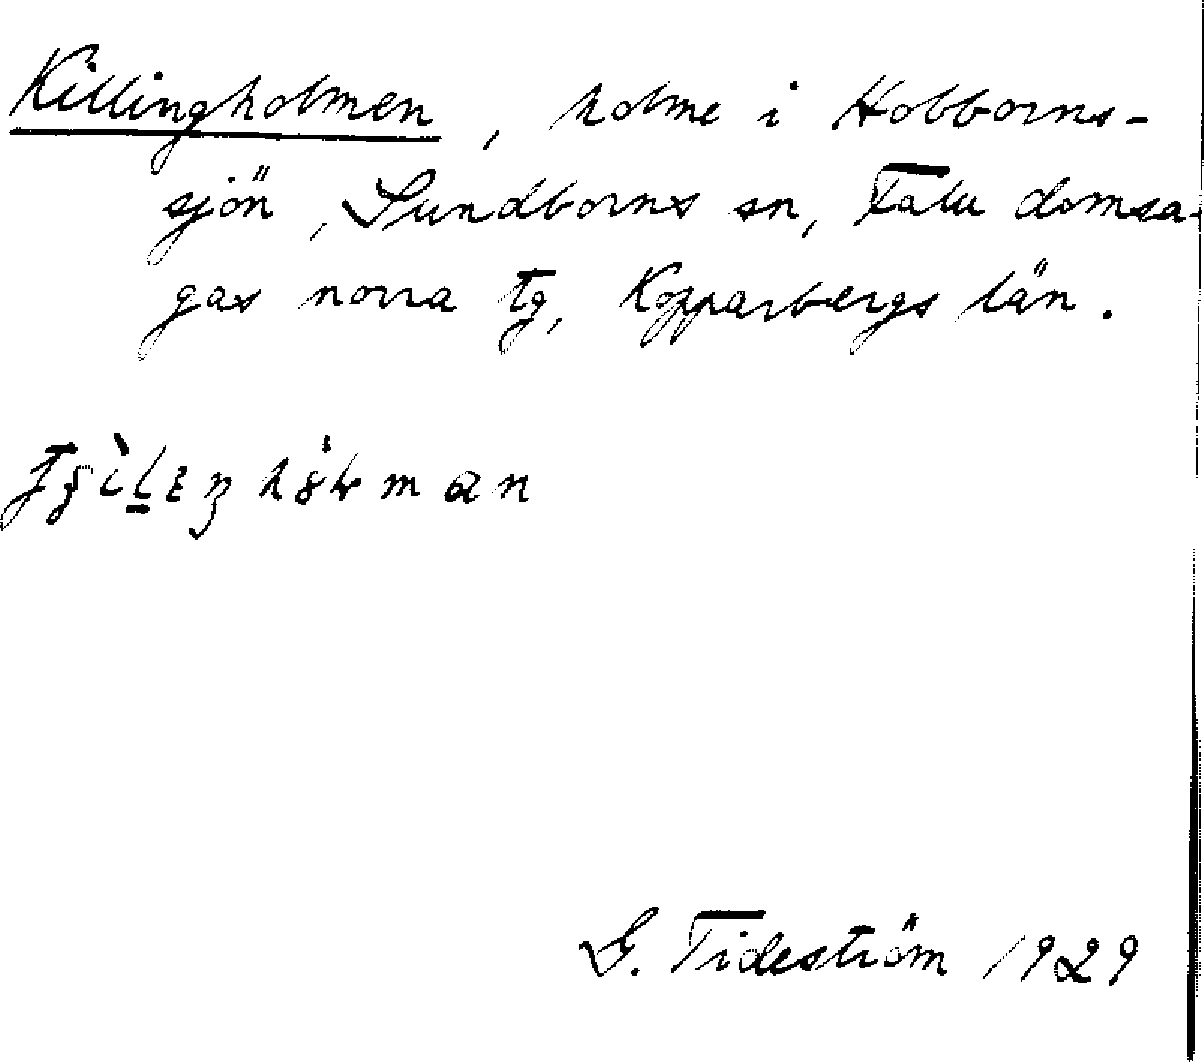 Killingholmen, holme i Hobborns-
sjön, Sundborns sn, Falu domsa-
gas norra tg, Kopparbergs län.
G. Tideström 1929